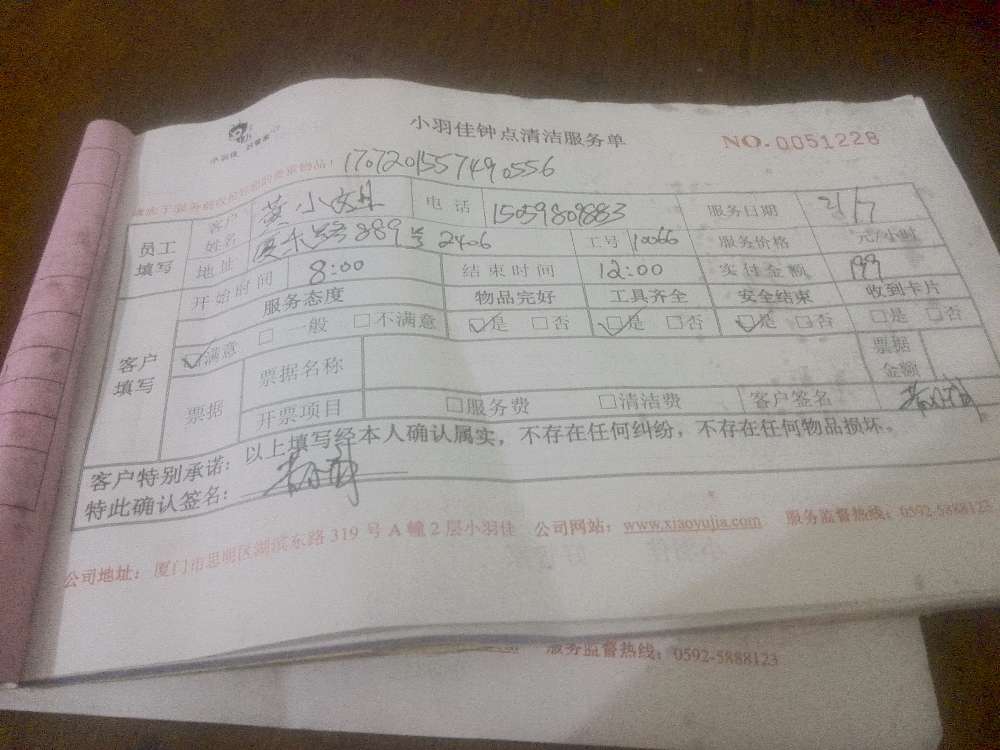 小羽佳钟点清洁服务单
NO.0051228
小羽佳
1707201557490556
员工填写 客户姓名 黄小 电话 15059809883 服务日期 21/7
地址 889号2406 工号 10066 服务价格 元/小时
开始时间 8:00 结束时间 12:00 实付金额 199
客户填写 服务态度 物品完好 工具齐全 安全结束 收到卡片
☑满意 □一般 □不满意 ☑是 □否 ☑是 □否 ☑是 □否 □是 □否
票据 票据名称 票据金额
开票项目 □服务费 □清洁费 客户签名
客户特别承诺：以上填写经本人确认属实，不存在任何纠纷，不存在任何物品损坏。
特此确认签名：
公司地址：厦门市思明区湖滨东路319号A幢2层小羽佳 公司网站：www.xiaoyujia.com 服务监督热线：0592-5888123
服务监督热线：0592-5888123